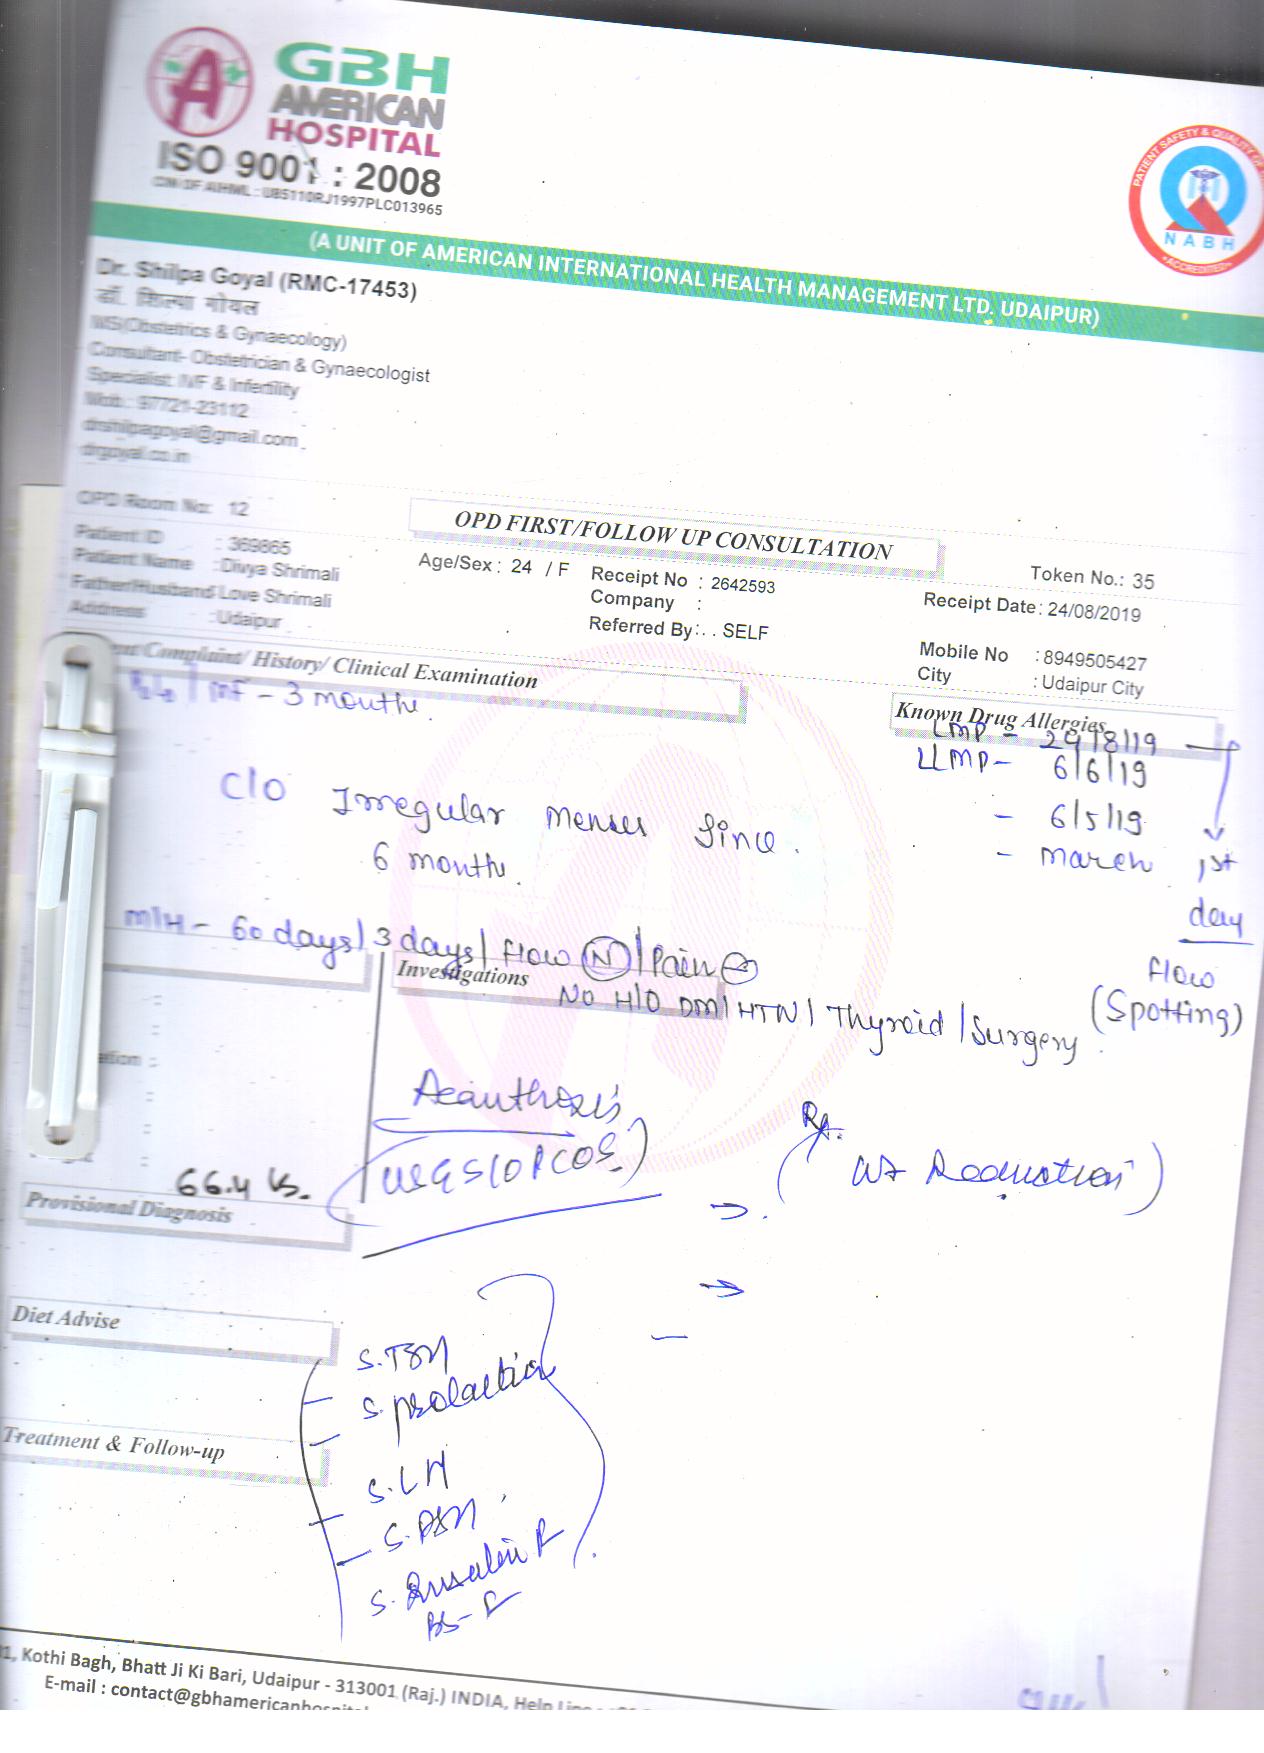 GBH
AMERICAN
HOSPITAL
ISO 9001 : 2008
CIN OF AIHML : U85110RJ1997PLC013965
PATIENT SAFETY & QUALITY OF
NABH
ACCREDITED
(A UNIT OF AMERICAN INTERNATIONAL HEALTH MANAGEMENT LTD. UDAIPUR)
Dr. Shilpa Goyal (RMC-17453)
डॉ. शिल्पा गोयल
MS(Obstetrics & Gynaecology)
Consultant- Obstetrician & Gynaecologist
Specialist: IVF & Infertility
Mob.: 97721-23112
drshilpagoyal@gmail.com
drgoyal.co.in
OPD Room No: 12
OPD FIRST/FOLLOW UP CONSULTATION
Patient ID : 369865
Age/Sex : 24 / F
Receipt No : 2642593
Token No.: 35
Patient Name :Divya Shrimali
Company :
Receipt Date: 24/08/2019
Father/Husband Love Shrimali
Referred By: . . SELF
Mobile No :8949505427
Address :Udaipur
City : Udaipur City
Complaint/ History/ Clinical Examination
Known Drug Allergies
MF - 3 months.
LMP - 24/8/19
LLMP- 6/6/19
- 6/5/19
- March 1st
day
flow
(Spotting)
C/O Irregular Menses Since.
6 months.
M/H - 60 days/3 days/flow (N)/Pain
Investigations
No H/O DM/HTN/Thyroid/Surgery
Acanthosis
USG S/O PCOS
Rx.
Wt Reduction
66.4 K.
Provisional Diagnosis
Diet Advise
S.TSH
S. prolactin
Treatment & Follow-up
S.LH
S.FSH
S. Insulin F
BS- F
1, Kothi Bagh, Bhatt Ji Ki Bari, Udaipur - 313001 (Raj.) INDIA, Help Line
E-mail : contact@gbhamericanhospital